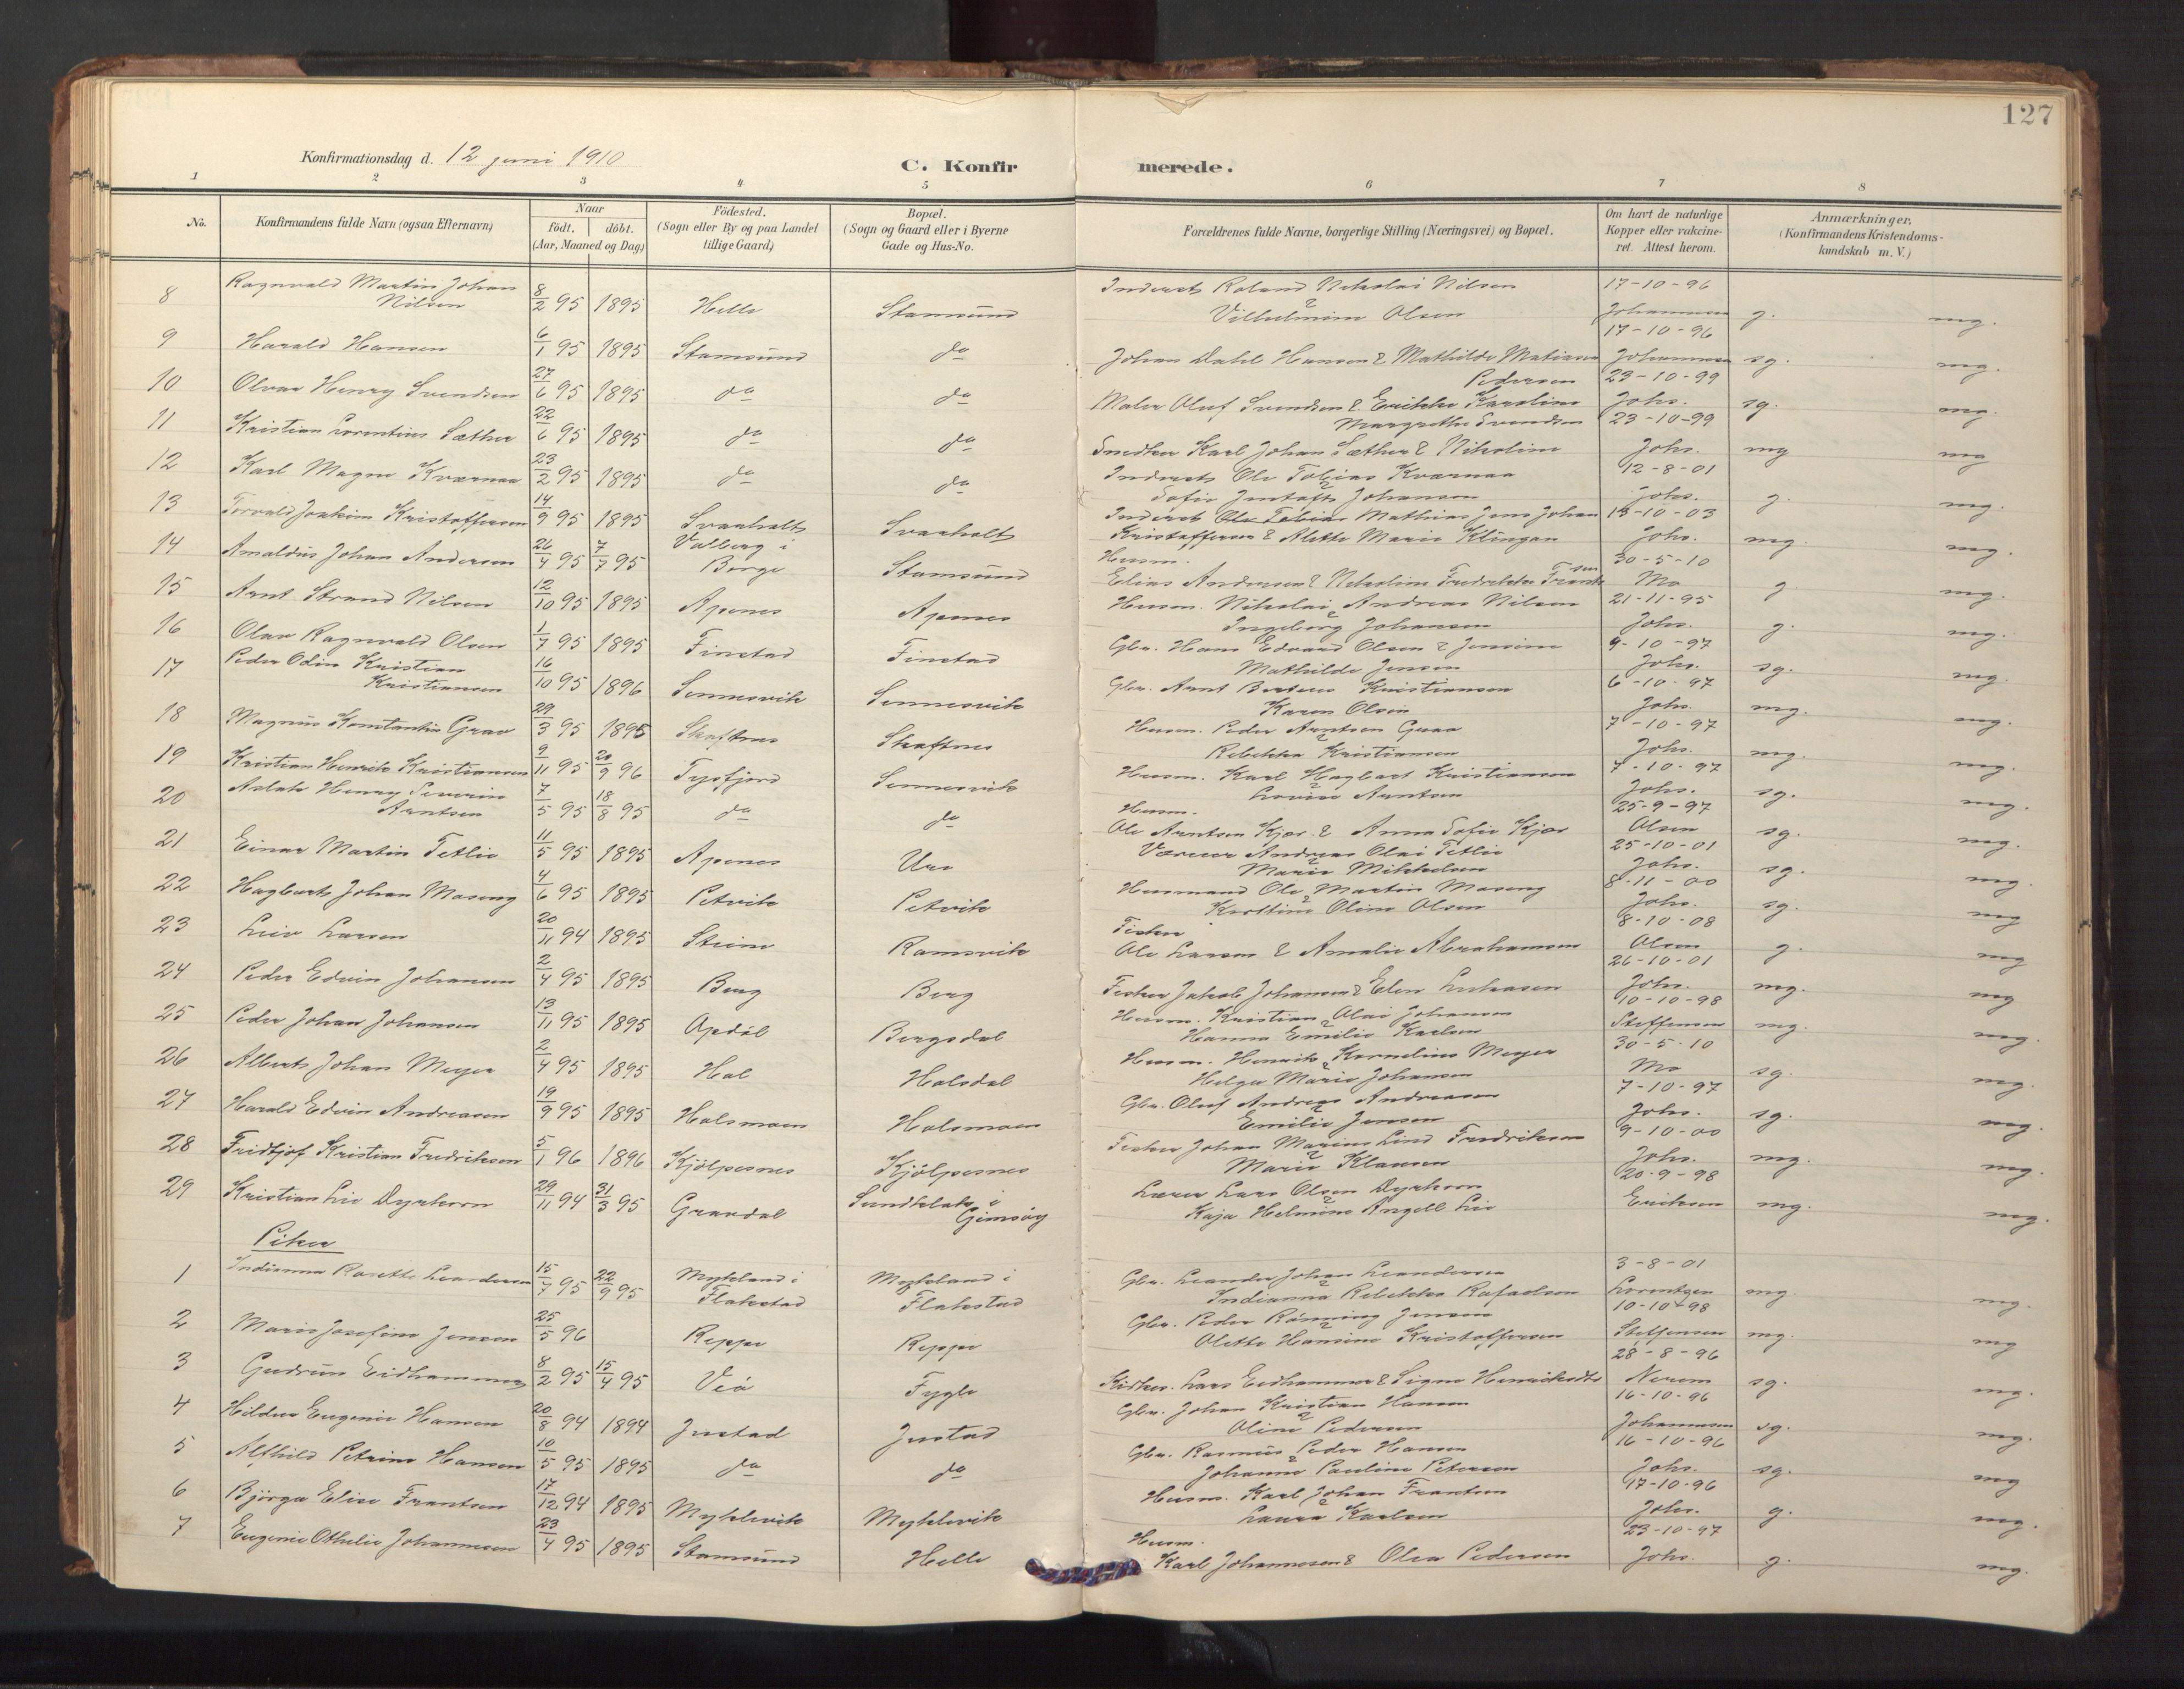 127
Konfirmationsdag d. 12 juni 1910
C. Konfirmerede.
1 2 3 4 5 6 7 8
No. | Konfirmandens fulde Navn (ogsaa Efternavn) | Naar födt. | döbt. (Aar, Maaned og Dag) | Födested. (Sogn eller By og paa Landet tillige Gaard) | Bopæl. (Sogn og Gaard eller i Byerne Gade og Hus-No. | Forældrenes fulde Navne, borgerlige Stilling (Næringsvei) og Bopæl. | Om havt de naturlige Kopper eller vakcineret. Attest herom. | Anmærkninger. (Konfirmandens Kristendomskundskab m. V.)
8 Ragnvald Martin Johan Nilsen 8/2 95 1895 Helle Stamsund Inderst Roland Nikolai Nilsen & Vilhelmine Olsen 17-10-96 Johannesen g. mg.
9 Harald Hansen 6/1 95 1895 Stamsund do Johan Dahl Hansen & Mathilde Matiasen Pedersen 17-10-96 Johannesen sg. mg.
10 Olvar Henry Svendsen 27/6 95 1895 do do Maler Oluf Svendsen & Erikke Karoline Margrethe Svendsen 23-10-99 Johs. sg. mg.
11 Kristian Lorentius Sæther 22/6 95 1895 do do Snedker Karl Johan Sæther & Nikoline 23-10-99 Johs. mg mg
12 Karl Magne Kværnaa 23/2 95 1895 do do Inderst Ole Tobias Kværnaa & Sofie Johansen 12-8-01 Johs. g. mg.
13 Torvald Joakim Kristoffersen 14/9 95 1895 Svaaholt Svarholt Inderst Ole Tobias Mathias Jens Johan Kristoffersen & Alette Marie Klingan 13-10-03 Johs. mg. mg.
14 Arnaldus Johan Andersen 26/4 95 7/7 95 Valberg i Borge Stamsund Husm. Elias Andersen & Nikoline Fredrikke Frantsen 30-5-10 Mo g. mg.
15 Arnt Strand Nilsen 12/10 95 1895 Apenes Apenes Husm. Nikolai Andreas Nilsen & Ingeborg Johansen 21-11-95 Johs. g. mg.
16 Olav Ragnvald Olsen 1/7 95 1895 Finstad Finstad Gbr. Hans Edvard Olsen & Jensine Mathilde Jensen 9-10-97 Johs. sg. mg.
17 Peder Odin Kristian Kristiansen 16/10 95 1896 Sennesvik Sennesvik Gbr. Arnt Kristiansen Karen Olsen 6-10-97 Johs. mg. mg.
18 Magnus Konstantin Graa 29/3 95 1895 Skaftnes Skaftnes Husm. Peder Arntsen Graa & Rebekka Kristiansen 7-10-97 Johs. mg. mg.
19 Kristian Henrik Kristiansen 9/11 95 20/9 96 Tysfjord Sennesvik Husm. Karl Hagbart Kristiansen Lovise Arntsen 7-10-97 Johs. sg. mg.
20 Aslak Henry Severin Arntsen 7/5 95 18/8 95 do do Husm. Ole Arntsen Kjær & Anna Sofie Kjær 25-9-97 Olsen sg. mg.
21 Einar Martin Tetlie 11/5 95 1895 Apenes Ure Værmer Andreas Olai Tetlie & Marie Mikkelsen 25-10-01 Johs. sg. mg.
22 Hagbart Johan Moseng 4/6 95 1895 Petvik Petvik Husmand Ole Martin Moseng & Olina Olsen 8-11-00 Johs. sg. mg
23 Leiv Larsen 20/11 94 1895 Steine Ramsvik Fisker Ole Larsen & Amalie Abrahamsen 8-10-08 Olsen g. mg
24 Peder Edvin Johansen 2/4 95 1895 Berg Berg Fisker Jakob Johansen & Elen Lukasen 26-10-01 Johs. mg. mg
25 Peder Johan Johansen 13/11 95 1895 Opdöl Bergsdal Husm. Kristian Olai Johansen & Hanna Emilie Karlsen 10-10-98 Steffensen mg. mg.
26 Albert Johan Meyer 2/4 95 1895 Hol Holsdal Husm. Henrik Kornelius Meyer & Helga Marie Johansen 30-5-10 Mo sg. mg.
27 Harald Edvin Andreasen 19/9 95 1895 Holsmoen Holsmoen Gbr. Oluf Andreas Andreasen & Emilie Jensen 7-10-97 Johs. sg. mg.
28 Fridtjof Kristian Fredriksen 5/1 96 1896 Kjölpesnes Kjölpesnes Fisker Johan Marius Lind Fredriksen & Marie Klausen 9-10-00 Johs. mg. mg.
29 Kristian Lie Dyrhorn 29/11 94 31/3 95 Graadal Sundklak i Gimsöy Lærer Lars Olsen Dyrhorn & Kaja Helmine Angell Lie 20-9-98 Eriksen mg. mg.
Piker
1 Indianna Rosette Leandersen 15/7 95 22/9 95 Mykland i Flakstad Mykland i Flakstad Gbr. Leander Johan Leandersen & Indianna Rebekka Rafaelsen 3-8-01 Lorentzen mg. mg.
2 Marie Josefine Jensen 25/5 96 Reppe Reppe Gbr. Peder Rönning Jensen & Olette Hansine Kristoffersen 10-10-98 Steffensen mg. mg
3 Gudrun Eidhammer 8/2 95 15/4 95 Veö Fygle Lars Eidhammer & Signe 28-8-96 Nerem sg. mg.
4 Hildur Eugenie Hansen 20/8 94 1894 Justad Justad Gbr. Johan Kristian Hansen & Oline Pedersen 16-10-96 Johannesen sg. mg.
5 Alfhild Petrine Hansen 10/5 95 1895 do do Gbr. Rasmus Peder Hansen & Johanne Pauline Petersen 16-10-96 Johs. sg. mg
6 Björga Elise Frantsen 17/12 94 1895 Myklevik Myklevik Husm. Karl Johan Frantsen & Laura Karlsen 17-10-96 Johs. g. mg.
7 Eugenie Othelie Johannesen 23/4 95 1895 Stamsund Helle Husm. Karl Johannesen & Olea Pedersen 23-10-97 Johs. g. mg.